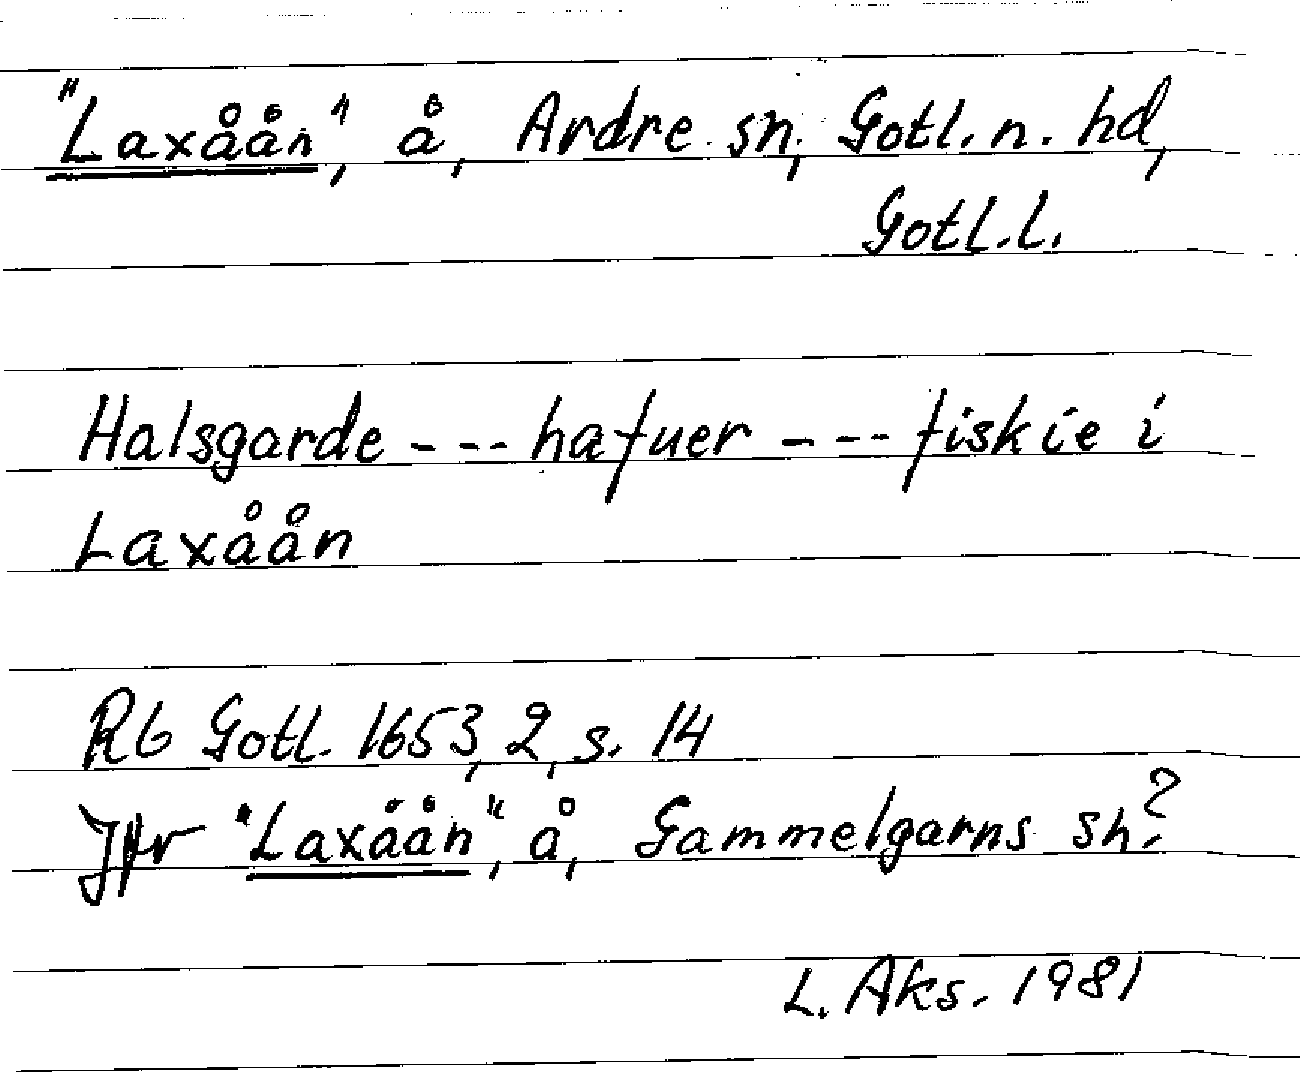 "Laxåån", å, Ardre sn, Gotl. n. hd,
Gotl. l.
Halsgarde --- hafuer --- fiskie i
Laxåån
Rb Gotl. 1653, 2, s. 14
Jfr "Laxåån", å, Gammelgarns sn?
L. Aks. 1981